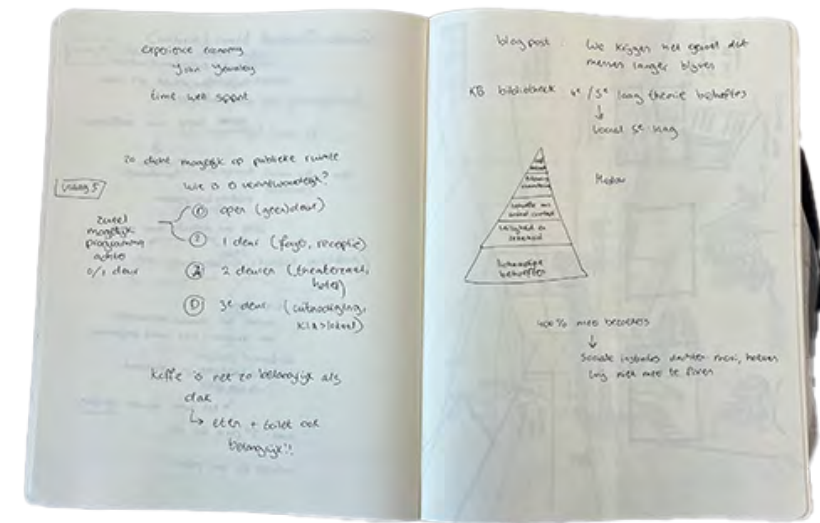 experience economy
time well spent
zo dicht mogelijk op publieke ruimte
Wie is verantwoordelijk?
vraag 5
zoveel
mogelijk
programma
achter
0/1 deur
open (geen deur)
1 deur (foyer, receptie)
2 deuren (theaterzaal,
hotel)
3e deur (uitnodiging,
klaslokaal)
Koffie is net zo belangrijk als
dak
↳ eten + toilet ook
belangrijk!!
blog post : We krijgen het gevoel dat
mensen langer blijven
KB bibliotheek 4e / 5e laag theorie behoeftes
↓
5e laag
behoefte aan
sociaal contact
veiligheid en
zekerheid
lichamelijke
behoeftes
400% meer bezoekers
↓
Sociale
niet mee te